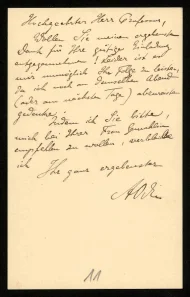 Hochgeehrter Herr Professor,
Wollen Sie meinen ergebensten
Dank für Ihre gütige Einladung
entgegennehmen! Leider ist es
mir unmöglich Ihr Folge zu leisten,
da ich noch an demselben Abend
(oder am nächsten Tage) abzureisen
gedenke.
Indem ich Sie bitte,
mich bei Ihrer Frau Gemahlin
empfehlen zu wollen, verbleibe
ich
Ihr ganz ergebenster
11